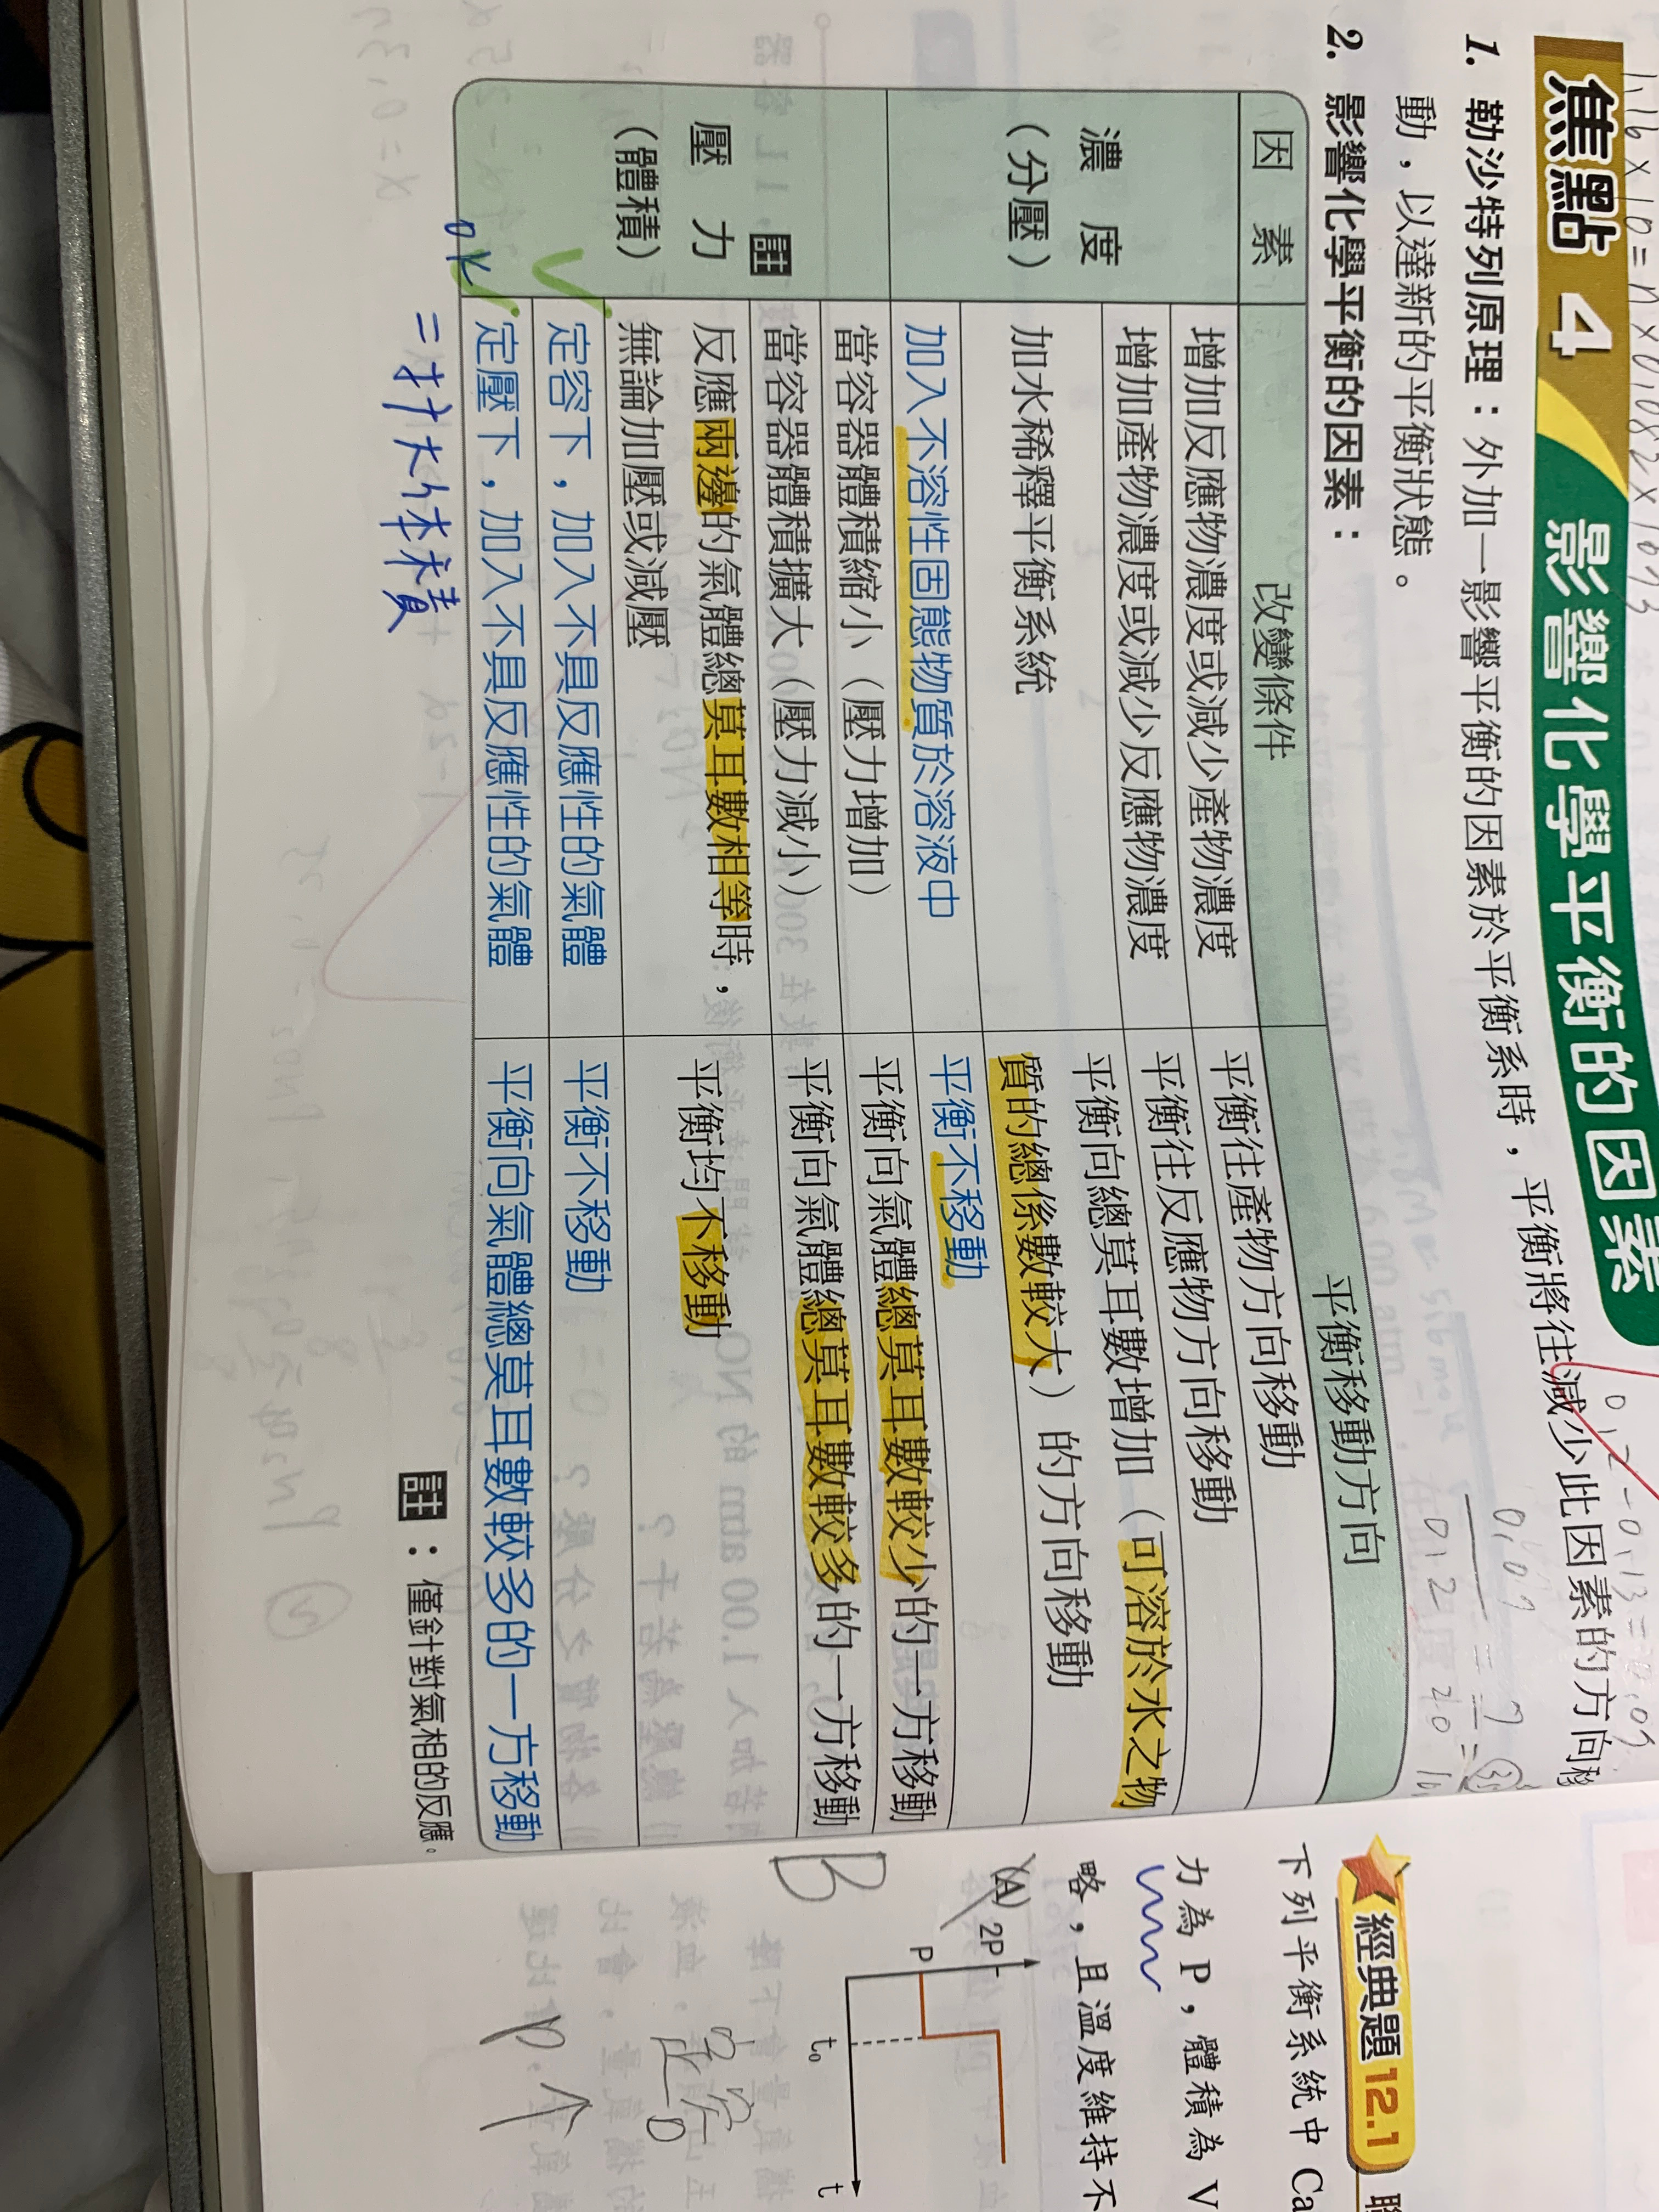 焦點 4 影響化學平衡的因素
1. 勒沙特列原理：外加一影響平衡的因素於平衡系時，平衡將往減少此因素的方向移
動，以達新的平衡狀態。
2. 影響化學平衡的因素：
因素 改變條件 平衡移動方向
濃度
（分壓）
增加反應物濃度或減少產物濃度 平衡往產物方向移動
增加產物濃度或減少反應物濃度 平衡往反應物方向移動
加水稀釋平衡系統 平衡向總莫耳數增加（可溶於水之物
質的總係數較大）的方向移動
加入不溶性固態物質於溶液中 平衡不移動
註
壓力
（體積）
當容器體積縮小（壓力增加） 平衡向氣體總莫耳數較少的一方移動
當容器體積擴大（壓力減小） 平衡向氣體總莫耳數較多的一方移動
反應兩邊的氣體總莫耳數相等時，
無論加壓或減壓 平衡均不移動
定容下，加入不具反應性的氣體 平衡不移動
定壓下，加入不具反應性的氣體 平衡向氣體總莫耳數較多的一方移動
OK
=扩大体積
註：僅針對氣相的反應。
經典題 12.1
下列平衡系統中 Ca
力為 P，體積為 V
略，且溫度維持不
(A)
2P
P
t₀
t
B